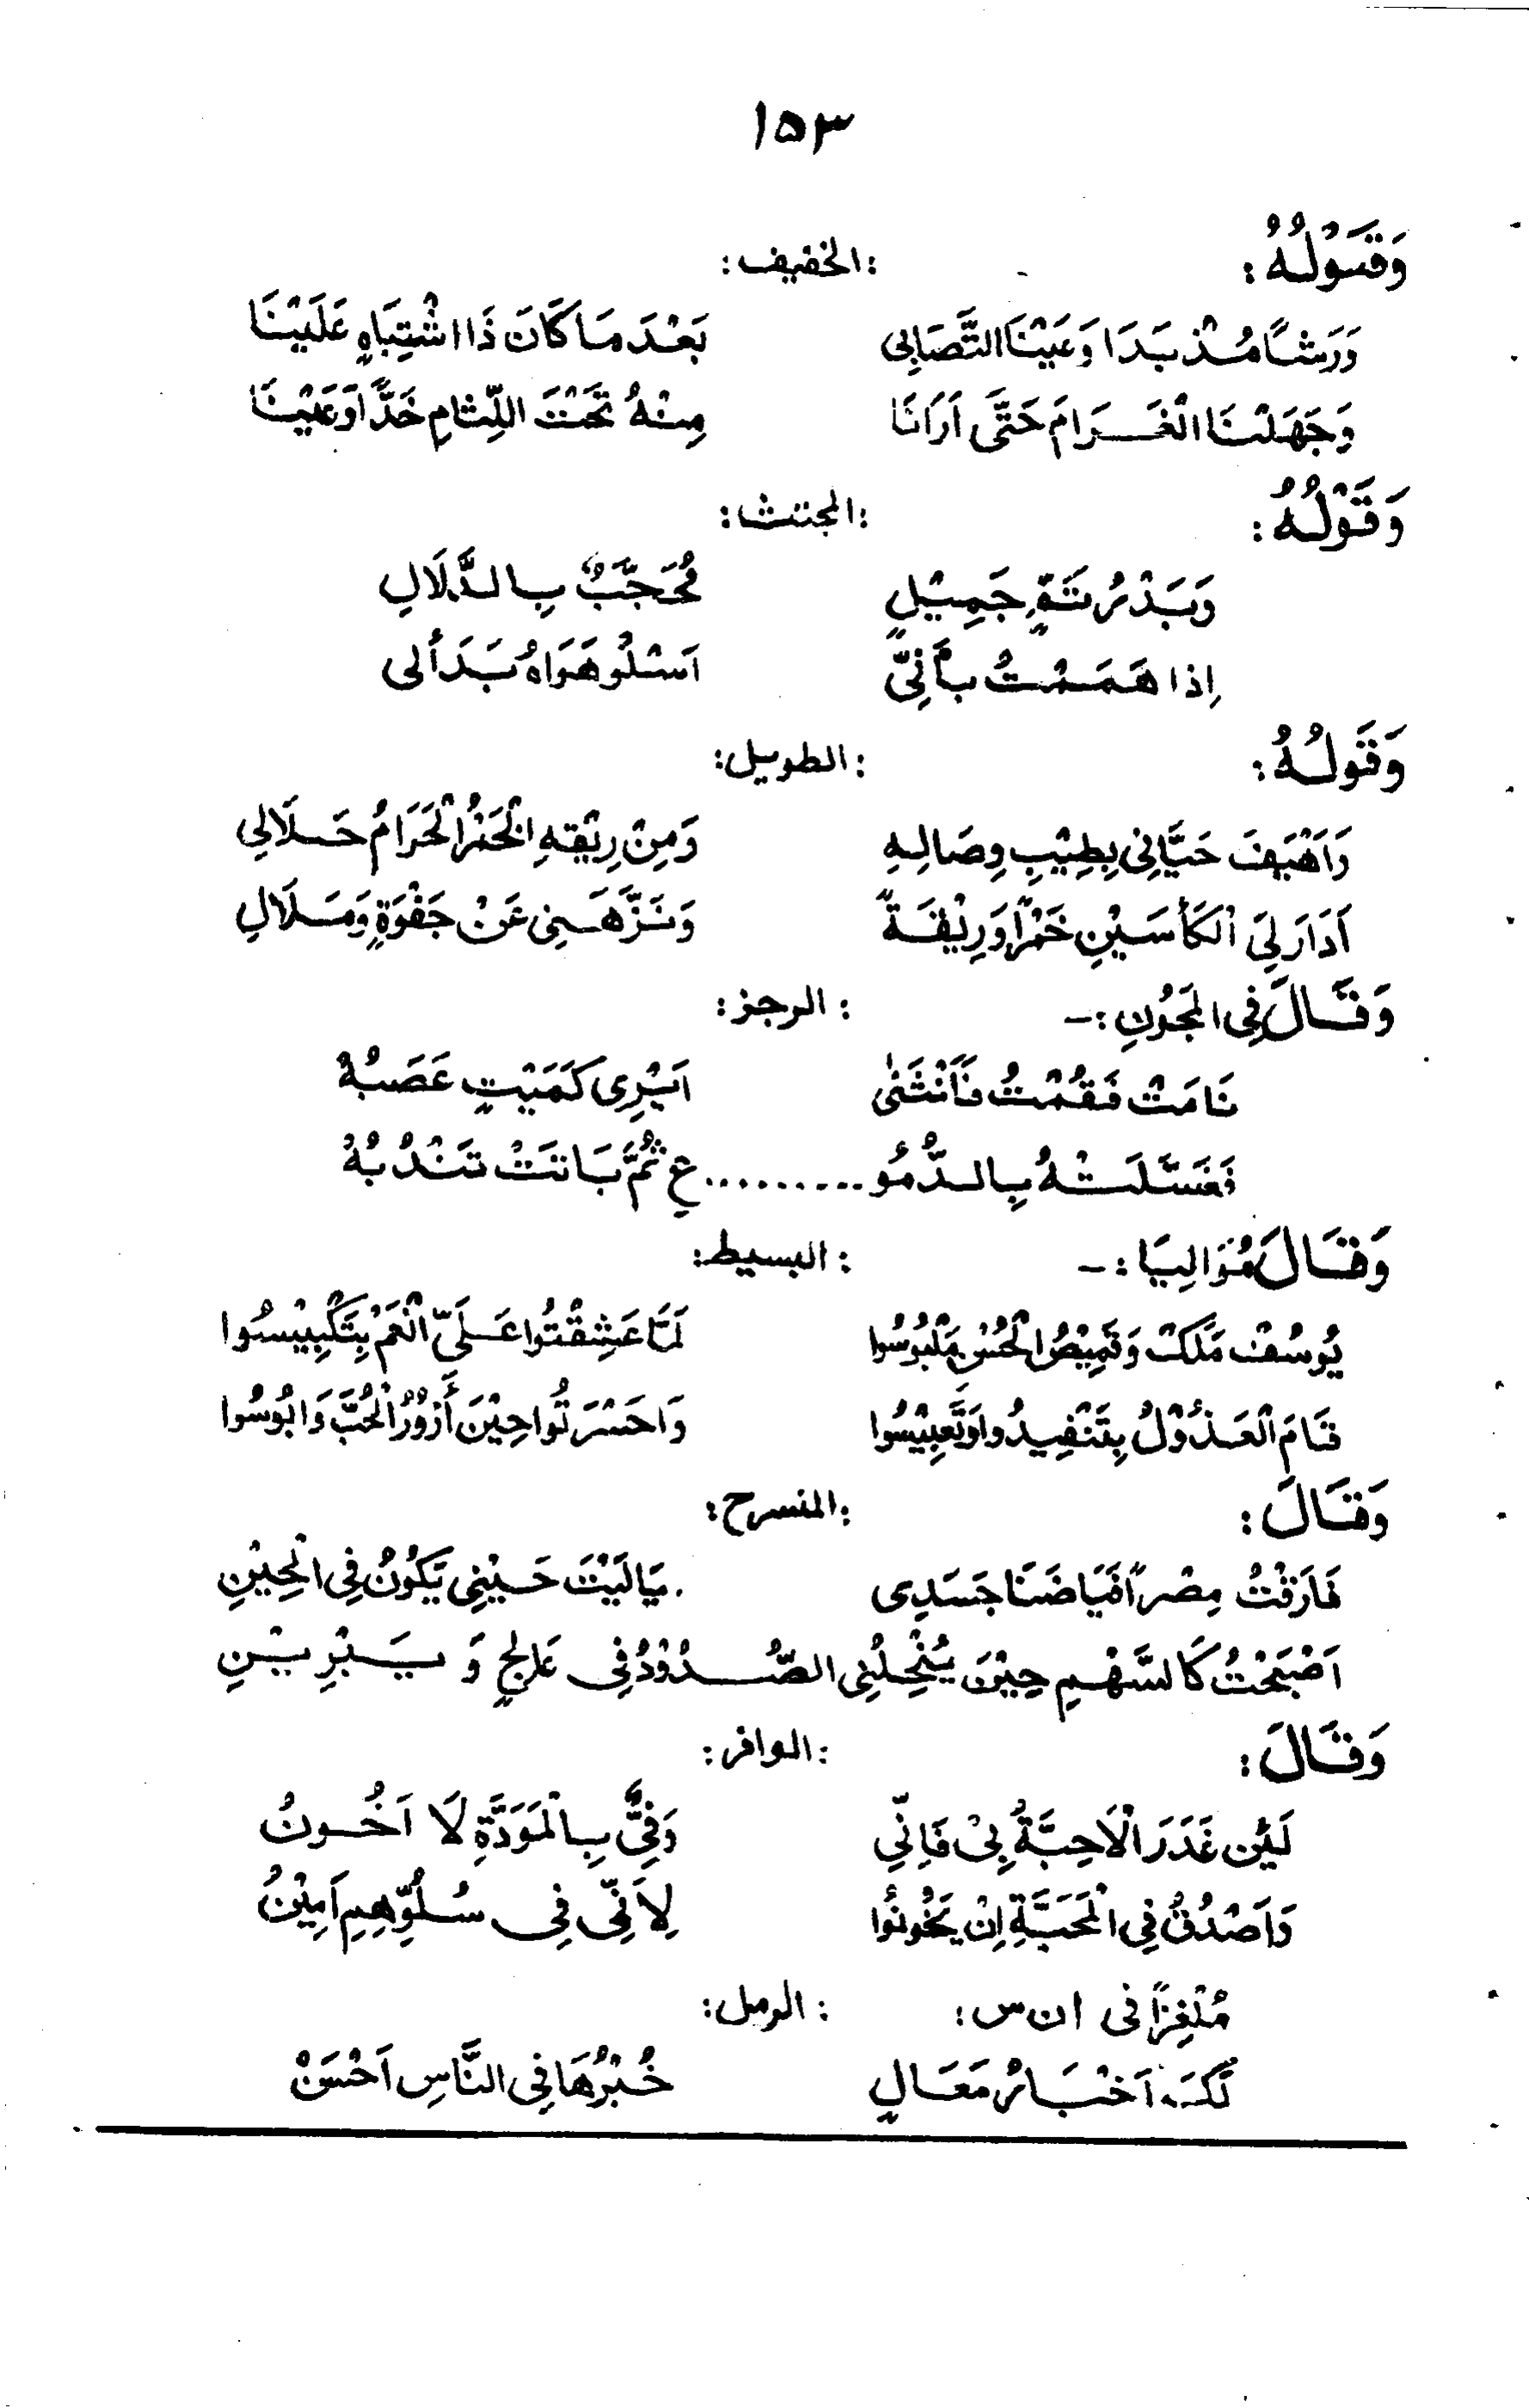 ١٥٣
وَقَوْلُهُ : :الخفيف:
وَرَشاً مُذْ بَدَا وَعَيْنَا التَّصَابِى بَعْدَ مَا كَانَ ذَا اشْتِبَاهٍ عَلَيْنَا
وَجَهَلْنَا الْغَرَامَ حَتَّى اَرَانَا مِنْهُ تَحْتَ اللِّثامِ خَدًّا وَعَيْنَا
وَقَوْلُهُ : :المجتث:
وَبَدْرُ تَمٍّ جَمِيْلٍ مُحَجَّبٌ بِالدَّلَالِ
اِذا هَمَمْتُ بأَنِّىّ اَسْلُو هَوَاهُ بَدَألى
وَقَولُهُ : :الطويل:
وَاَهْيَفَ حَيَّانِى بِطِيْبِ وِصَالِهِ وَمِنْ رِيْقِهِ الْخَمْرُ الْحَرَامُ حَلَالِي
اَدَارَ لِىَ الْكَأسَيْنِ خَمْراً وَرِيْقَةً وَنَزَّهَنِى عَنْ جَفْوَةٍ وَمَلَالِ
وَقَالَ فِى المَجُونِ :— :الرجز:
نَامَتْ فَقُمْتُ فَأنْثَنىٰ اَيْرِى كَمَيْتٍ عَصَبُهُ
فَغَسَّلَتْهُ بِالدُّمُو.........عِ ثُمَّ بَاتَتْ تَنْدُبُهْ
وَقَالَ مُوَالِيَا :— :البسيط:
يُوسُفْ مَلَكْ وَقَمِيْصُ الْحُسْنِ مَلْبُوسُوا لَمَّا عَشِقْتُوا عَلَىّ الْغَمْ بِتَكْبِيْسُوا
قَامَ الْعَذُوْلُ بِتَنْفِيدُوا وَتَعْبِيْسُوا وَاحَسْرَتُوا حِيْنَ أَزُوْرُ الْحُبَّ وَابُوسُوا
وَقَالَ : :المنسرح:
فَارَقْتُ مِصْراً فَيَاضَنَا جَسَدِى يَالَيْتَ حَيْنِى يَكُوْنُ فِى الْحِيْنِ
اَصْبَحْتُ كَالسَّهْمِ حِيْنَ يُنْحِلُنِى الصُّدُوْدُ فِى عَالِجٍ وَ يَبْرِيْنِ
وَقَالَ : :الوافر:
لَئِن غَدَرَ الْاَحِبَّةُ بِىْ فَاِنِّي وَفِىٌّ بِالْمَوَدَّةِ لَا اَخُونُ
وَاَصْدُقُ فِى الْمَحَبَّةِ اِنْ يَخُونُوا لِاَنِّى فِى سُلُوِّهِمِ اَمِيْنُ
مُلْغِزاً فى ان س: :الرمل:
لَكَ اَخْبَارُ مَعَالٍ خُبْرُهَا فِى النَّاسِ اَحْسَنْ